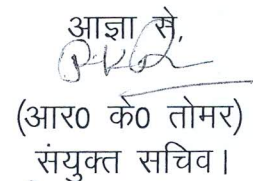 आज्ञा से,
(आर0 के0 तोमर)
संयुक्त सचिव।